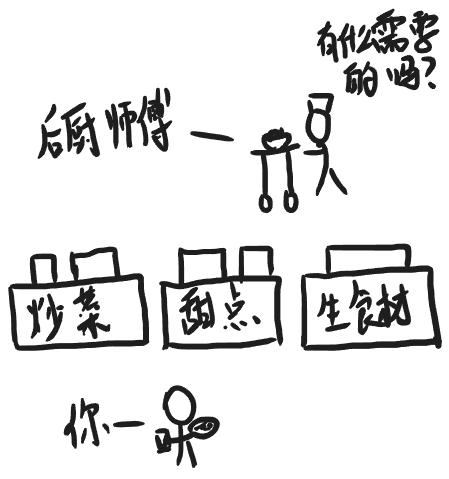 有什么需要
的吗?
后厨师傅
炒菜
甜点
生食材
你